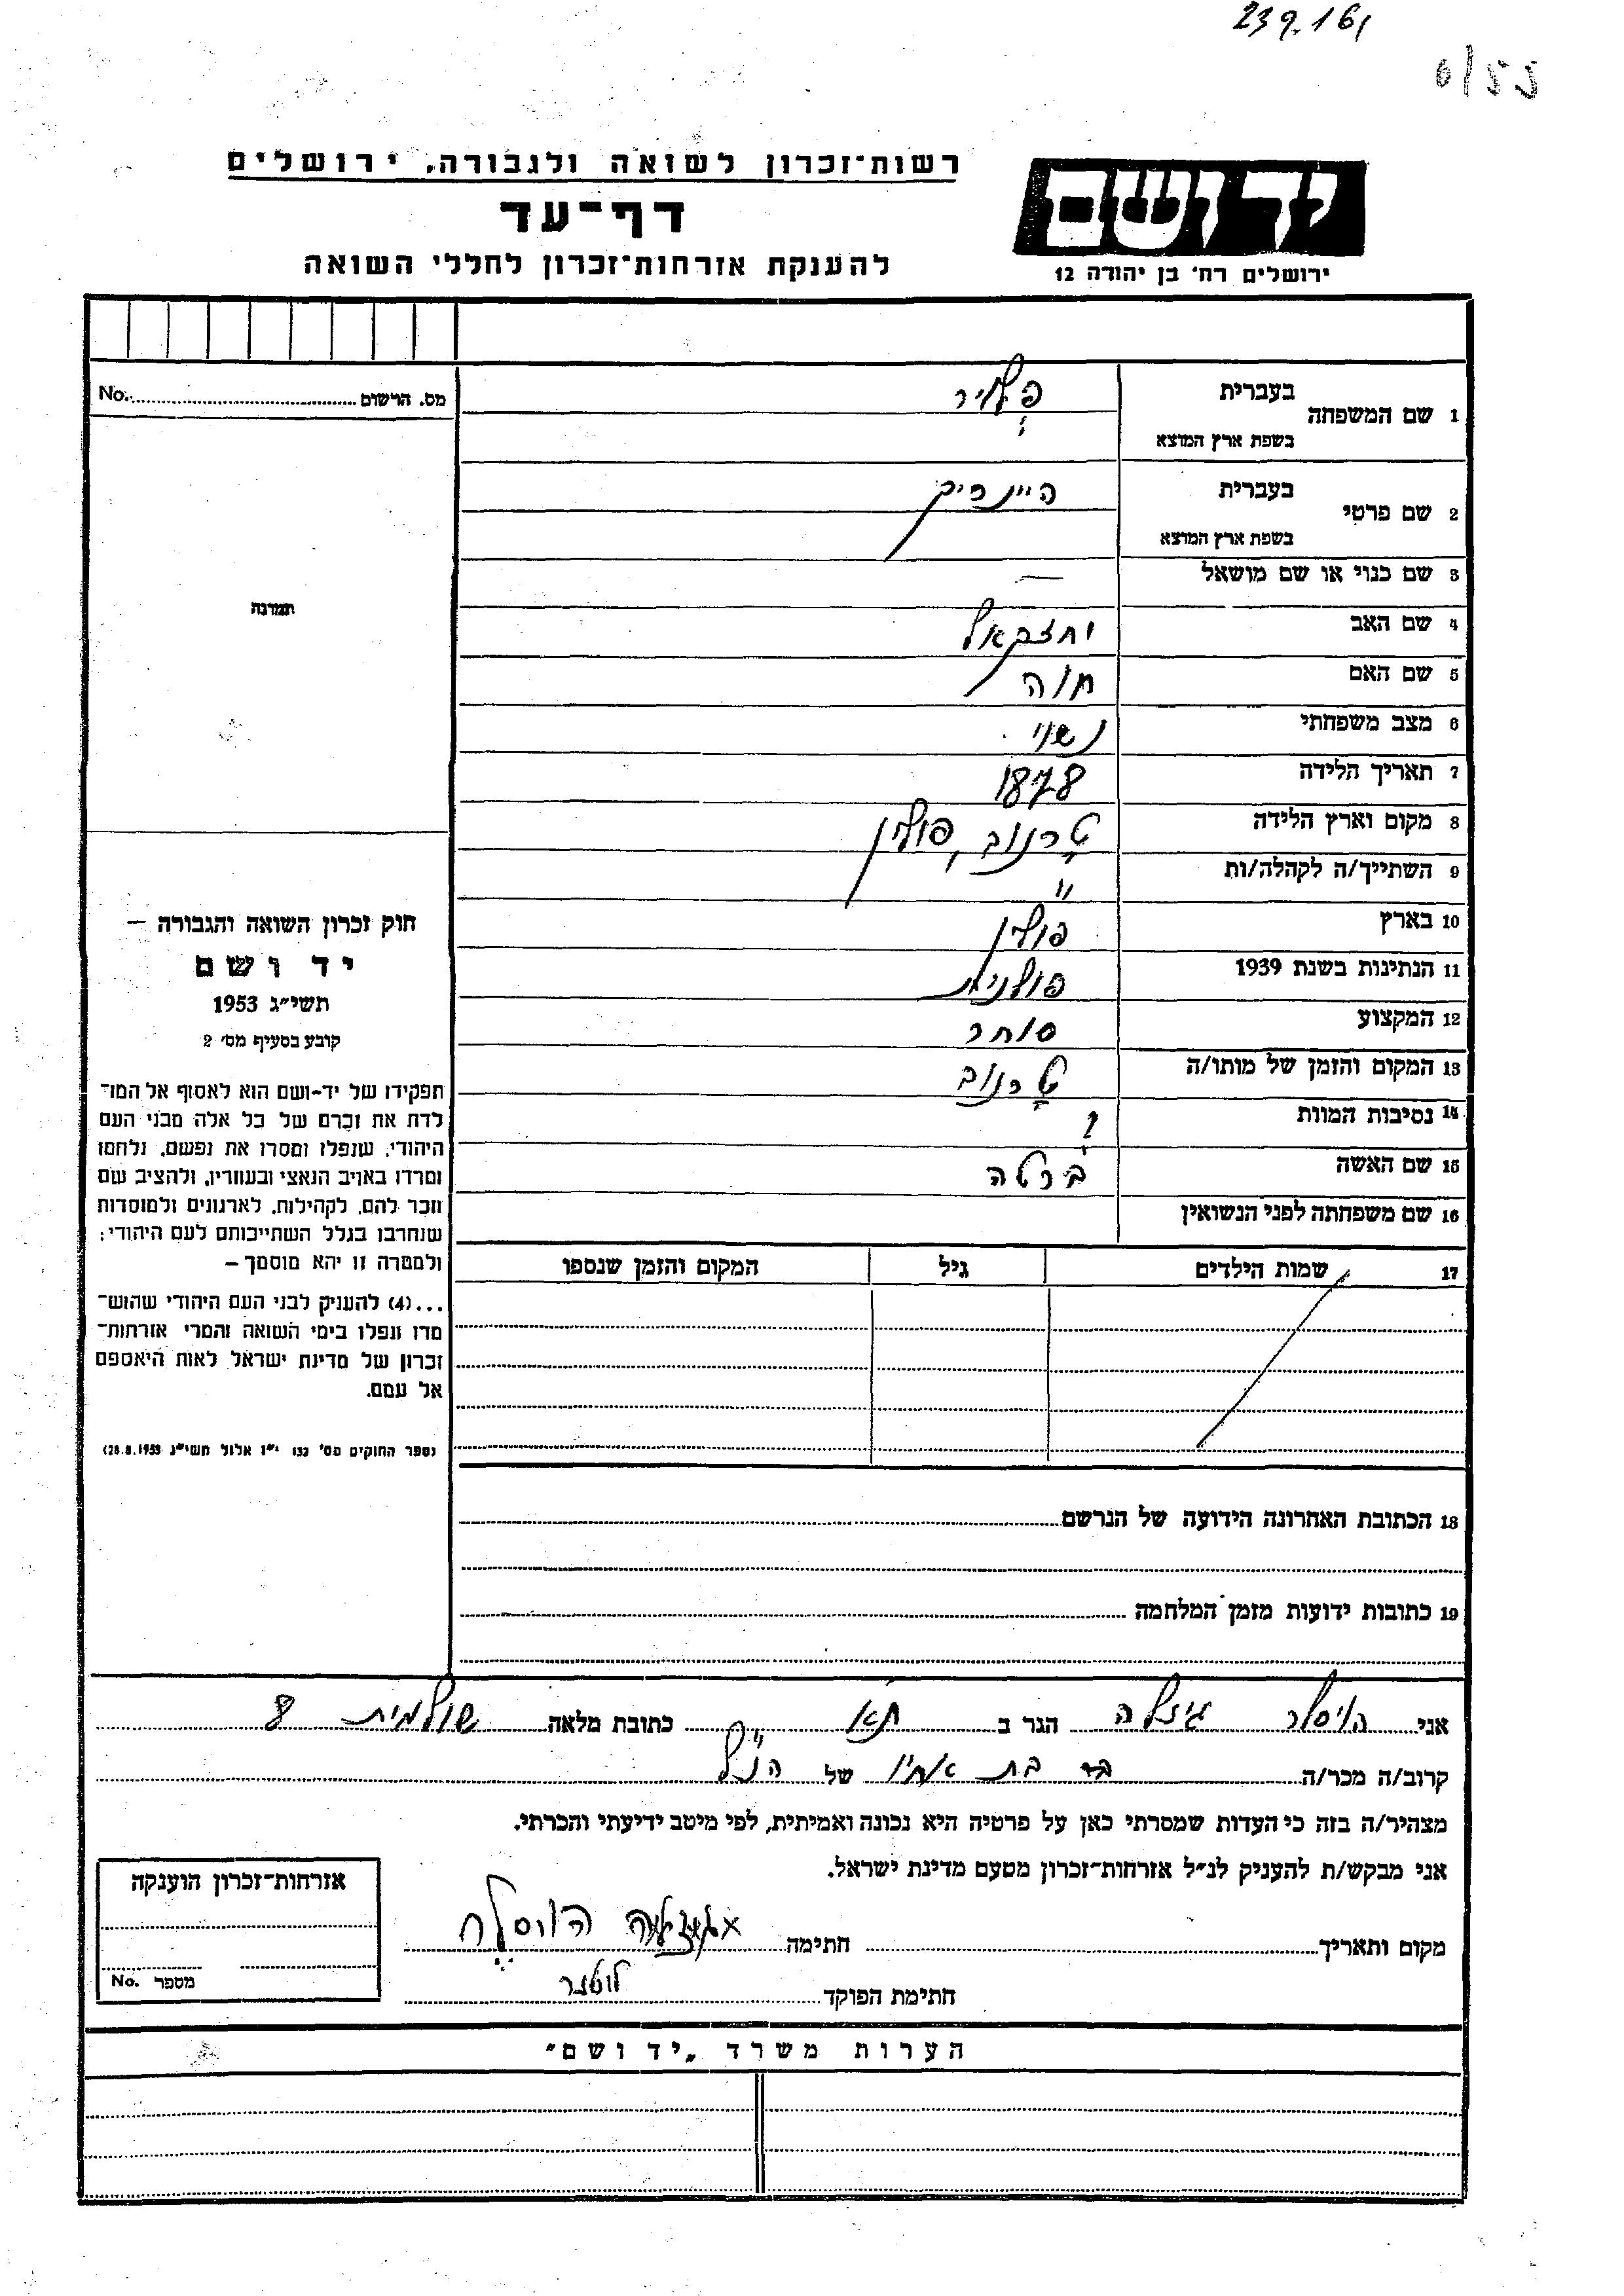 239.161
6/55
רשות־זכרון לשואה ולגבורה, ירושלים
דף־עד
להענקת אזרחות־זכרון לחללי השואה
יד ושם
ירושלים רח' בן יהודה 12
מס. הרשום No.
תמונה
1 שם המשפחה
בעברית
בשפת ארץ המוצא
2 שם פרטי
בעברית היינריך
בשפת ארץ המוצא
3 שם כנוי או שם מושאל —
4 שם האב יחזקאל
5 שם האם חוה
6 מצב משפחתי נשוי
7 תאריך הלידה 1878
8 מקום וארץ הלידה טרנוב, פולין
9 השתייך/ה לקהלה/ות "
10 בארץ פולין
11 הנתינות בשנת 1939 פולנית
12 המקצוע סוחר
13 המקום והזמן של מותו/ה טרנוב
14 נסיבות המוות ?
15 שם האשה ברטה
16 שם משפחתה לפני הנשואין
17 שמות הילדים גיל המקום והזמן שנספו
18 הכתובת האחרונה הידועה של הנרשם
19 כתובות ידועות מזמן המלחמה
חוק זכרון השואה והגבורה —
יד ושם
תשי״ג 1953
קובע בסעיף מס' 2
תפקידו של יד-ושם הוא לאסוף אל המו־
לדת את זכרם של כל אלה מבני העם
היהודי, שנפלו ומסרו את נפשם, נלחמו
ומרדו באויב הנאצי ובעוזריו, ולהציב שם
וזכר להם, לקהילות, לארגונים ולמוסדות
שנחרבו בגלל השתייכותם לעם היהודי;
ולמטרה זו יהא מוסמך —
...(4) להעניק לבני העם היהודי שהוש־
מדו ונפלו בימי השואה והמרי אזרחות־
זכרון של מדינת ישראל לאות היאספם
אל עמם.
(ספר החוקים מס' 132 י״ז אלול תשי״ג 28.8.1953)
אני הויסלר גיזלה הגר ב ת״א כתובת מלאה שולמית 8
קרוב/ה מכר/ה בת אחיו של הנ״ל
מצהיר/ה בזה כי העדות שמסרתי כאן על פרטיה היא נכונה ואמיתית, לפי מיטב ידיעתי והכרתי.
אני מבקש/ת להעניק לנ״ל אזרחות־זכרון מטעם מדינת ישראל.
מקום ותאריך חתימה
חתימת הפוקד
אזרחות־זכרון הוענקה
מספר No.
הערות משרד „יד ושם״